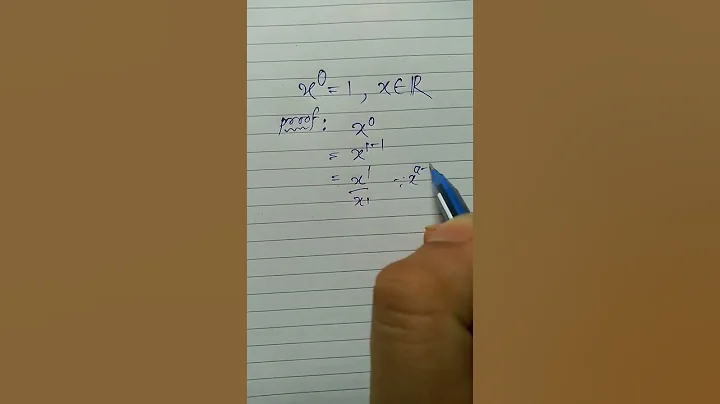 x⁰ = 1, x ∈ ℝ
proof: x⁰
= x¹⁻¹
= x¹/x¹ ∵ xᵃ⁻